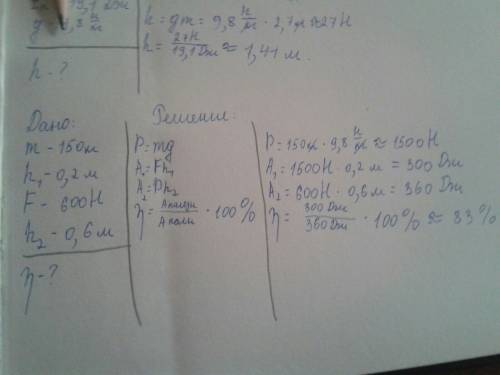 19,1 Дж
g 9,8 Н/м
h - ?
h = gm = 9,8 Н/м · 2,7 ≈ 27Н
h = 27Н/19,1Дж ≈ 1,41 м.
Дано:
m - 150м
h₁ - 0,2 м
F - 600Н
h₂ - 0,6м
η - ?
Решение:
P = mg
A₁ = Fh₁
A₂ = Ph₂
η = Аполезн/Аполн · 100%
P = 150 · 9,8 Н/кг ≈ 1500Н
A₁ = 1500Н · 0,2 м = 300 Дж
A₂ = 600Н · 0,6м = 360 Дж
η = 300 Дж/360 Дж · 100% ≈ 83%